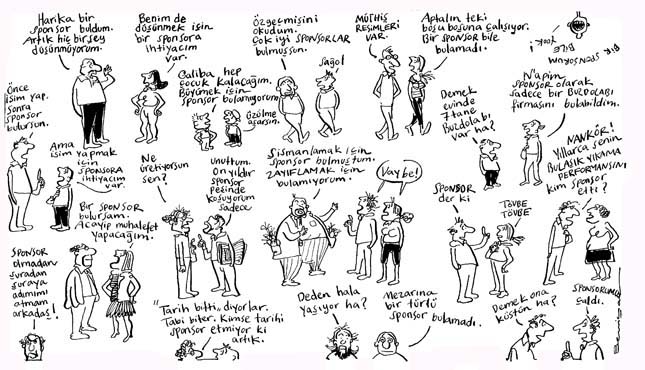 Harika bir
sponsor buldum.
Artık hiç bir şey
düşünmüyorum.
Benim de
düşünmek için
bir sponsora
ihtiyacım
var.
Özgeçmişini
okudum.
Çok iyi SPONSORLAR
bulmuşsun.
Sağol
MÜTHİŞ
RESİMLERİ
VAR.
Aptalın teki
boşu boşuna çalışıyor.
Bir SPONSOR bile
bulamadı.
BİR SPONSORUM
BİLE
YOOK!
Önce
işim yap.
Sonra
sponsor
bulursun.
Galiba hep
çocuk kalacağım.
Büyümek için
sponsor bulamıyorum
üzülme
aşarsın.
Demek
evinde
7 tane
Buzdolabı
var ha?
N'apim
SPONSOR olarak
sadece bir BUZDOLABI
firmasını bulabildim.
Ama
işim yapmak
için
SPONSORA
ihtiyacım
var.
Ne
üretiyorsun
sen?
Unuttum.
On yıldır
sponsor
peşinde
koşuyorum
sadece
Şişmanlamak için
sponsor bulmuştum.
ZAYIFLAMAK için
bulamıyorum.
Vay be!
SPONSOR
der ki
TÖVBE
TÖVBE
NANKÖR!
Yıllarca senin
BULAŞIK YIKAMA
PERFORMANSINI
kim sponsor
etti?
Bir SPONSOR
bulursam.
Acayip muhalefet
yapacağım.
SPONSOR
olmadan
şuradan
şuraya
adımımı
atmam
arkadaş!
"Tarih bitti" diyorlar.
Tabi biter. Kimse tarihi
sponsor etmiyor ki
artık.
Deden hala
yaşıyor ha?
Mezarına
bir türlü
sponsor bulamadı.
Demek ona
küstün ha?